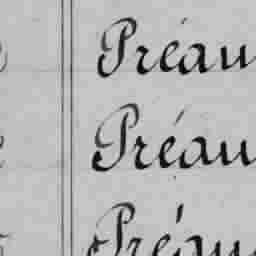 Préau
Préau
Préau